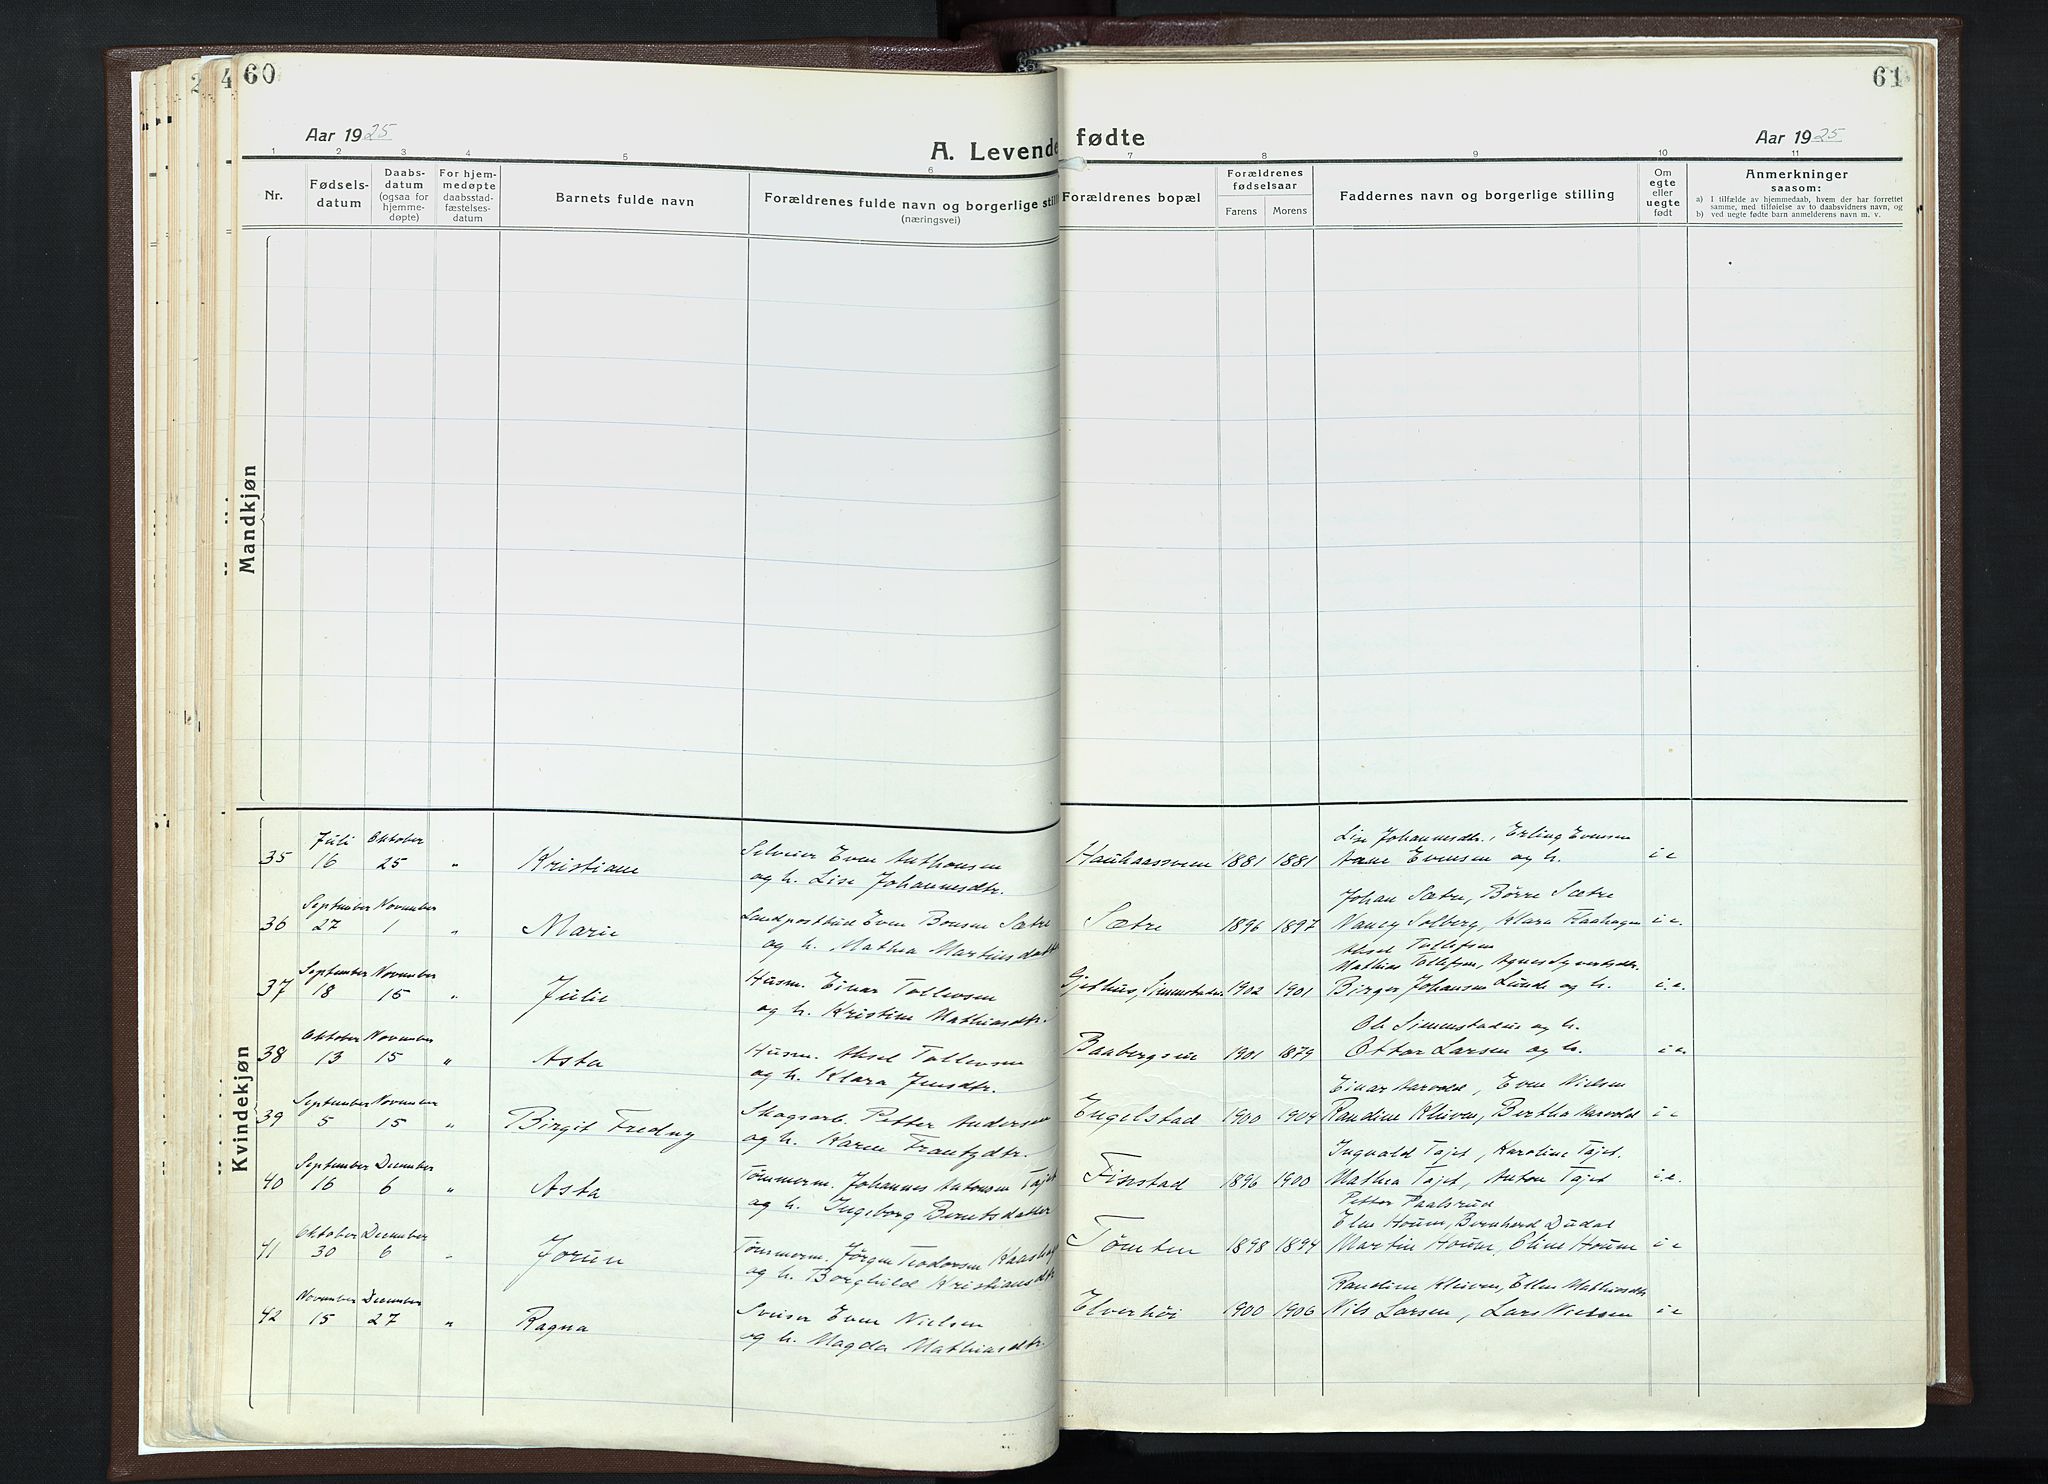 60
Aar 1925
A. Levende
1 2 3 4 5 6
Nr.
Fødsels-
datum
Daabs-
datum
(ogsaa for
hjemme-
døpte)
For hjem-
medøpte
daabsstad-
fæstelses-
datum
Barnets fulde navn
Forældrenes fulde navn og borgerlige still
(næringsvei)
Mandkjøn
Kvindekjøn
Juli Oktober
35 16 25 " Kristiane
og h. Lise Johannesdtr.
September November
36 27 1 " Marie Even Sætre
og h. Mathea
September November
37 18 15 " Julie Husm. Einar Tollevsen
og h. Kristine Mathiasdtr.
Oktober November
38 13 15 " Asta Husm. Aksel Tollevsen
og h. Klara Jensdtr.
September November
39 5 15 " Birgit Fredny Skogsarb. Petter Andersen
og h. Karen Frantzdtr.
September December
40 16 6 " Asta Tømmerm. Johannes Antonsen Tajet
og h. Ingeborg Berntsdatter
Oktober December
41 30 6 " Jorun Tømmerm. Jørgen Teodorsen
og h. Borghild Kristiansdtr
November December
42 15 27 " Ragna Sveiser Even Nielsen
og h. Magda Mathiasdtr.
61
fødte
Aar 1925
7 8 9 10 11
Forældrenes bopæl
Forældrenes
fødselsaar
Farens Morens
Faddernes navn og borgerlige stilling
Om
egte
eller
uegte
født
Anmerkninger
saasom:
a) I tilfælde av hjemmedaab, hvem der har forrettet
samme, med tilføielse av to daabsvidners navn, og
b) ved uegte fødte barn anmelderens navn m. v.
Lise Johannesdtr., Erling Evensen
1881 1881 Evensen og h. i e
Johan Sætre, Børre Sætre
Sætre 1896 1897 Nancy Solberg, Klara i e.
Aksel Tollefsen
Mathias Tollefsen, Agnes
Gjethus, 1902 1901 Birger Johansen Lunde og h. i. e.
Ole og h.
1901 1879 Ottar Larsen og h. i e.
Einar Aarvold, Even Nielsen
Engelstad 1900 1904 Randine Kleiven, Bertha Aarvold i e
Ingvald Tajet, Karoline Tajet.
Finstad 1896 1900 Mathea Tajet, Anton Tajet i. e.
Petter Paalsrud
Houm, Bernhard Dudal
Tømten 1898 1894 Martin Houm, Oline Houm i e
Randine Kleiven, Ellen Mathiasdtr
Elverhøi 1900 1906 Nils Larsen, Lars Nielsen i e